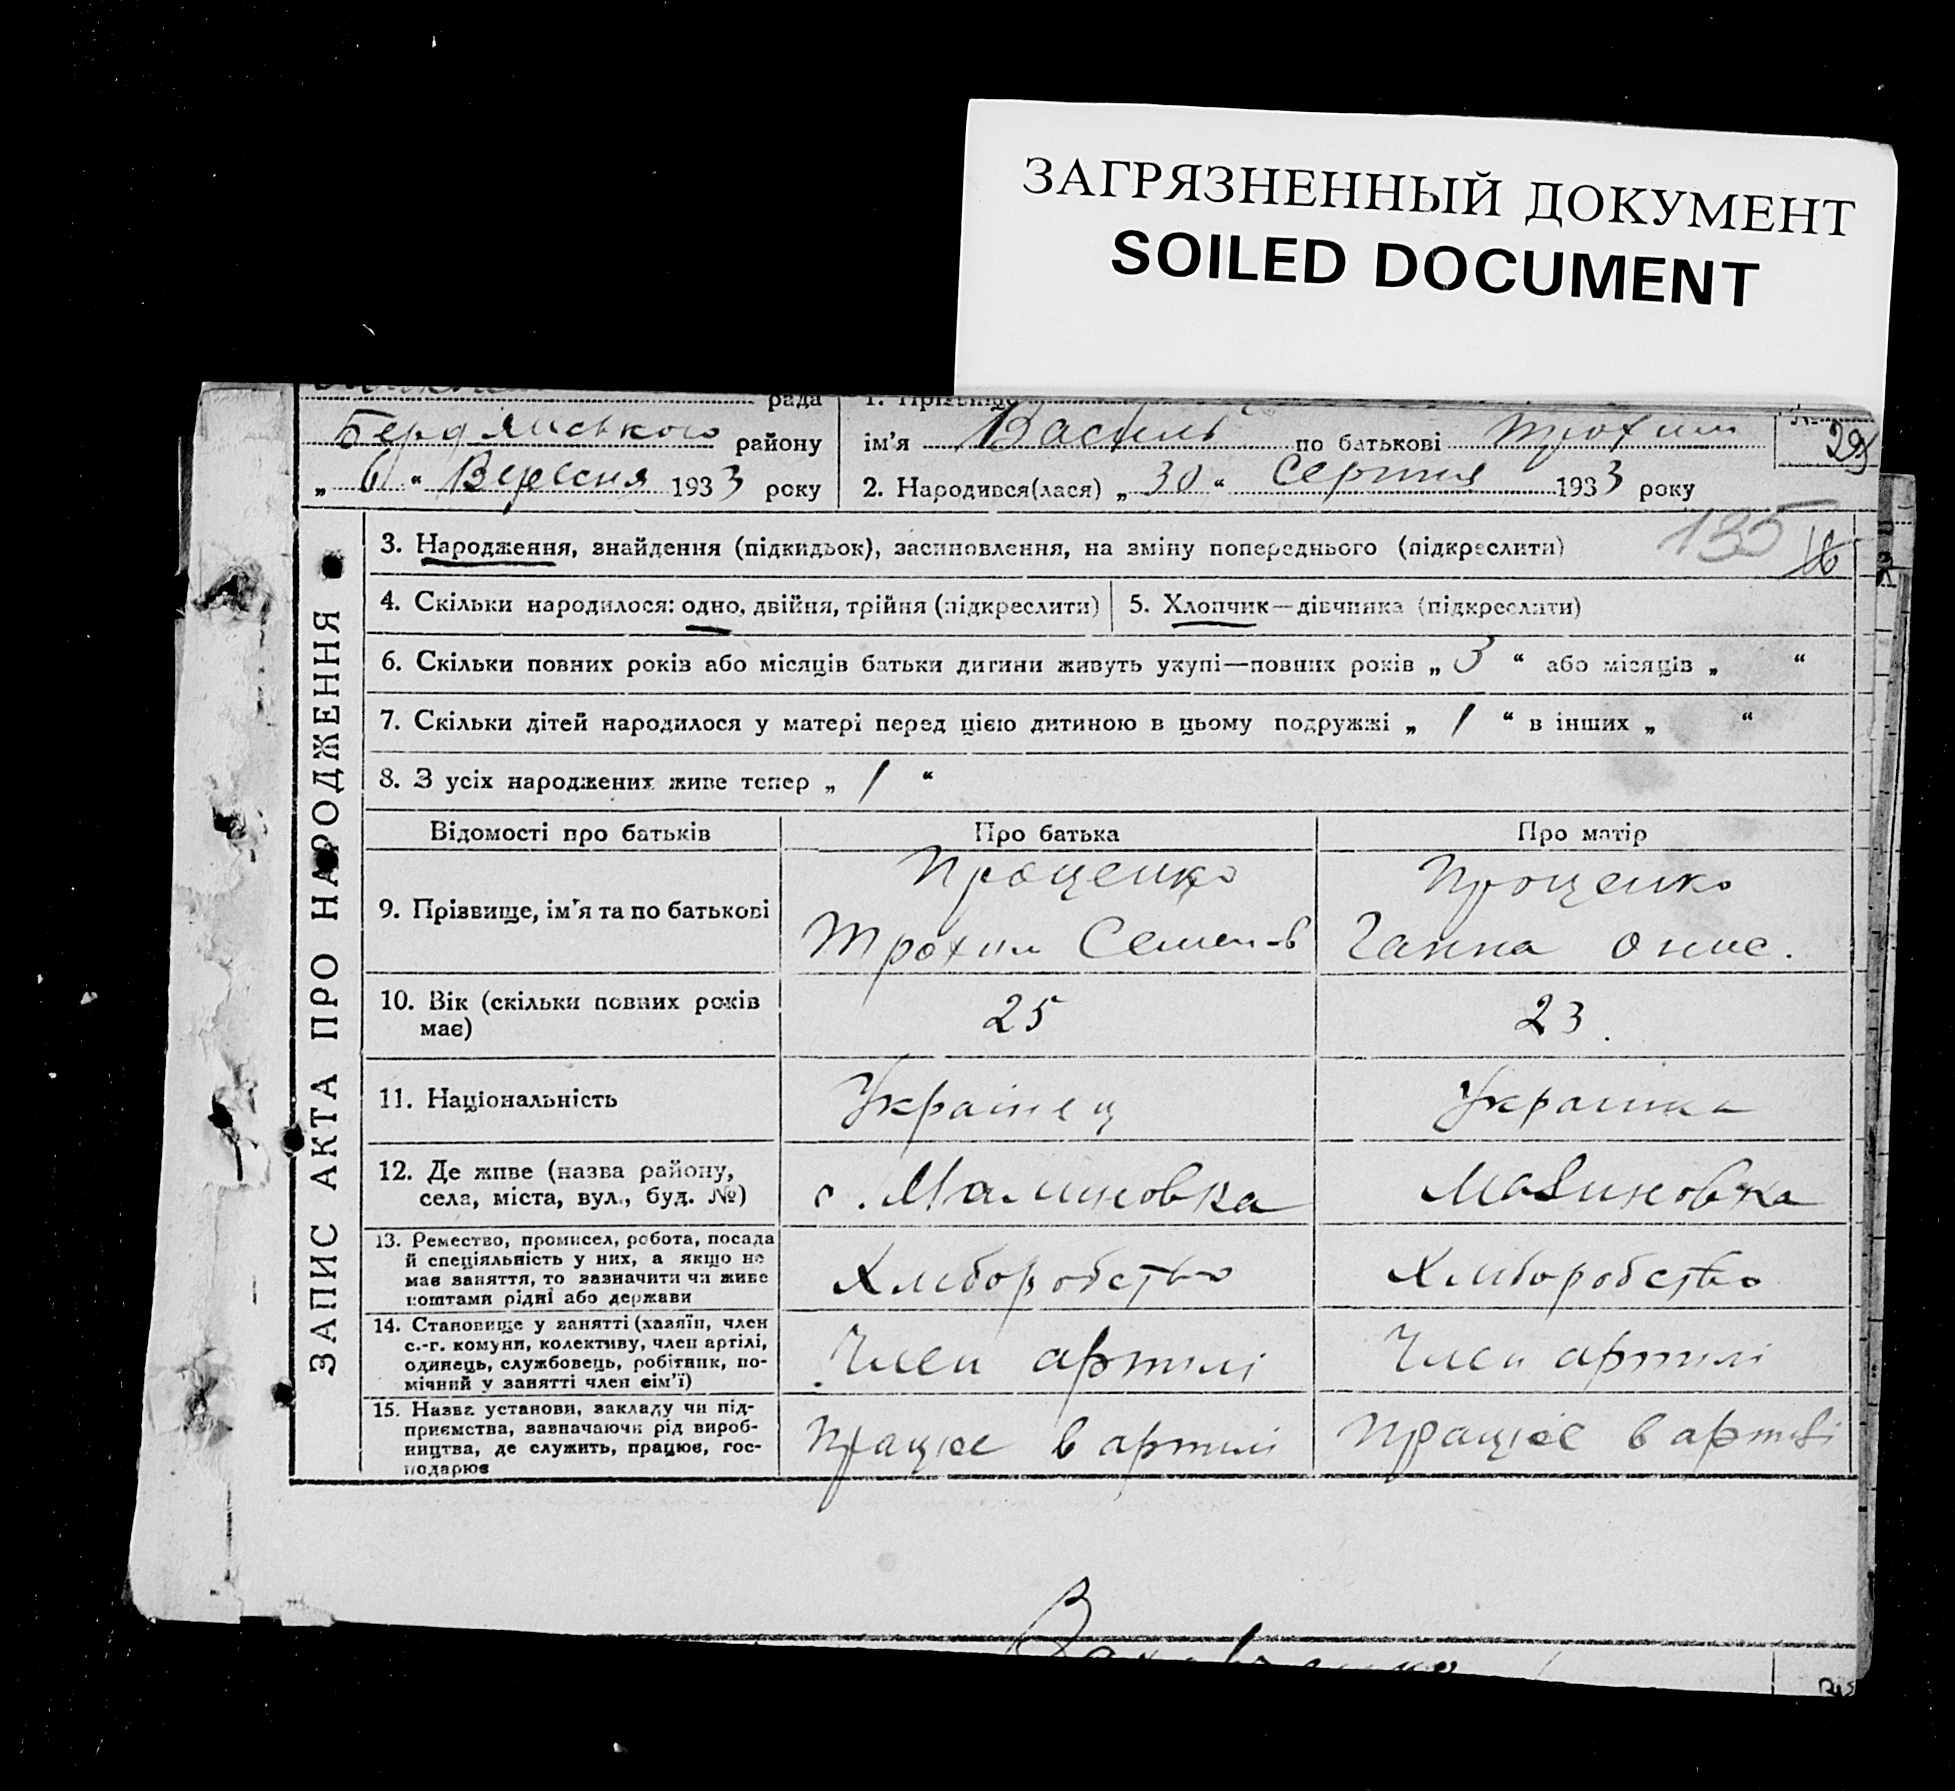 ЗАГРЯЗНЕННЫЙ ДОКУМЕНТ
SOILED DOCUMENT
рада
1. Прізвище
Бердянського району
ім'я Василь по батькові Трохим
29
„ 6 “ Вересня 1933 року
2. Народився(лася) „ 30 “ Серпня 1933 року
135
ЗАПИС АКТА ПРО НАРОДЖЕННЯ
3. Народження, знайдення (підкидьок), засиновлення, на зміну попереднього (підкреслити)
4. Скільки народилося: одно, двійня, трійня (підкреслити)
5. Хлопчик—дівчинка (підкреслити)
6. Скільки повних років або місяців батьки дитини живуть укупі—повних років „ 3 “ або місяців „ “
7. Скільки дітей народилося у матері перед цією дитиною в цьому подружжі „ 1 “ в інших „ “
8. З усіх народжених живе тепер „ 1 “
Відомості про батьків
Про батька
Про матір
9. Прізвище, ім'я та по батькові
Проценко
Трохим Семен-в
Проценко
Ганна Онис.
10. Вік (скільки повних років
має)
25
23.
11. Національність
Українец
Українка
12. Де живе (назва району,
села, міста, вул., буд. №)
с. Малиновка
Малиновка
13. Ремество, промисел, робота, посада
й спеціяльність у них, а якщо не
має заняття, то зазначити чи живе
коштами рідні або держави
Хліборобство
Хліборобство
14. Становище у занятті (хазяїн, член
с.-г. комуни, колективу, член артілі,
одинець, службовець, робітник, по-
мічний у занятті член сім'ї)
Член артилі
Член артилі
15. Назва установи, закладу чи під-
приємства, зазначаючи рід вироб-
ництва, де служить, працює, гос-
подарює
Працює в артилі
Працює в артилі